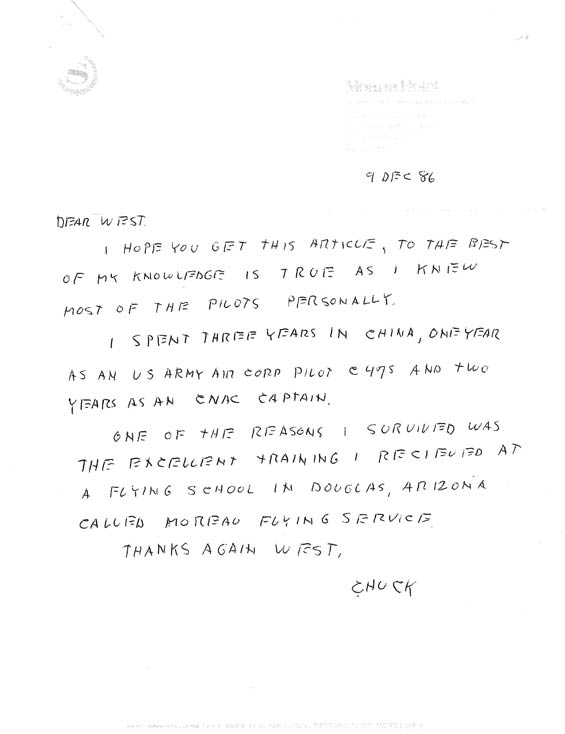 Hotel
9 DEC 86
DEAR WEST.
I HOPE YOU GET THIS ARTICLE, TO THE BEST
OF MY KNOWLEDGE IS TRUE AS I KNEW
MOST OF THE PILOTS PERSONALLY.
I SPENT THREE YEARS IN CHINA, ONE YEAR
AS AN US ARMY AIR CORP PILOT C 47S AND TWO
YEARS AS AN CNAC CAPTAIN.
ONE OF THE REASONS I SURVIVED WAS
THE EXCELLENT TRAINING I RECIEVED AT
A FLYING SCHOOL IN DOUGLAS, ARIZONA
CALLED MOREAU FLYING SERVICE.
THANKS AGAIN WEST,
CHUCK